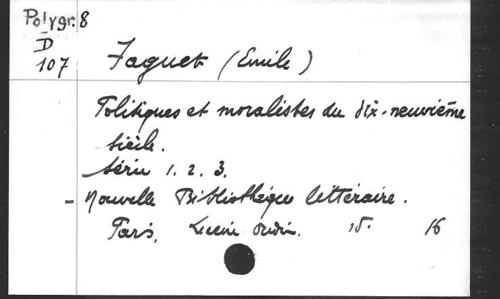 Polygr. 8
D
107
Faguet (Emile)
Politiques et moralistes du dix-neuvième
siècle.
Série 1. 2. 3.
- Nouvelle Bibliothèque littéraire.
Paris, 16